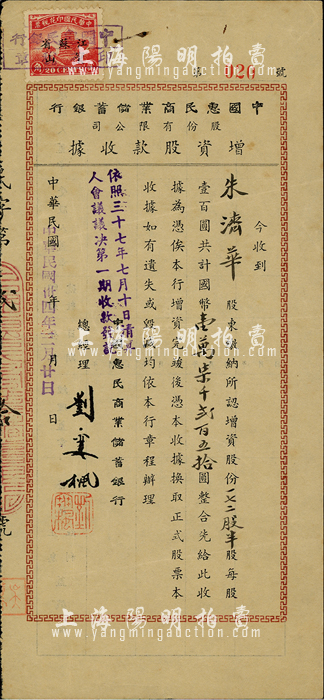 上海陽明拍賣
www.yangmingauction.com
中華民國印花稅票
蘇
江
山
20 CENTS
020 號
中國惠民商業儲蓄銀行
股份有限公司
增資股款收據
今收到
朱濟華 股東繳納所認增資股份一七二股半股每股
壹百圓共計國幣壹萬柒千貳百五拾圓整合先給此收
據為憑俟本行增資完竣後憑本收據換取正式股票本
收據如有遺失或毀滅均依本行章程辦理
惠民商業儲蓄銀行
總 理 劉
依照三十七年七月十日
人會議議決第一期收款
中華民國 年 月 日
民國卅四年三月廿日
上海陽明拍賣
www.yangmingauction.com
上海陽明拍賣
www.yangmingauction.com